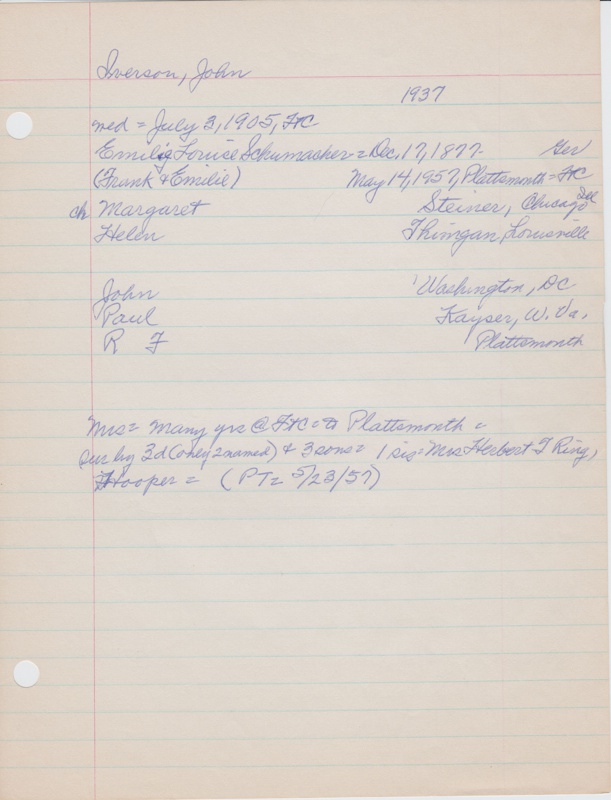 Iverson, John
1937
med = July 3, 1905, FtC
Emilie Louise Schumacher = Dec, 17, 1877- Ger
(Frank & Emilie) May 14, 1957, Plattsmonth = FtC
ch Margaret Steiner, Chicago Ill
Helen Thimgan, Louisville
John Washington, DC
Paul Kayser, W. Va,
R F Plattsmonth
Mrs = many yrs @ FtC = to Plattsmonth =
sur by 3d (only 2 named) & 3 sons = 1 sis = Mrs Herbert T Ring,
Hooper = (PT = 5/23/57)